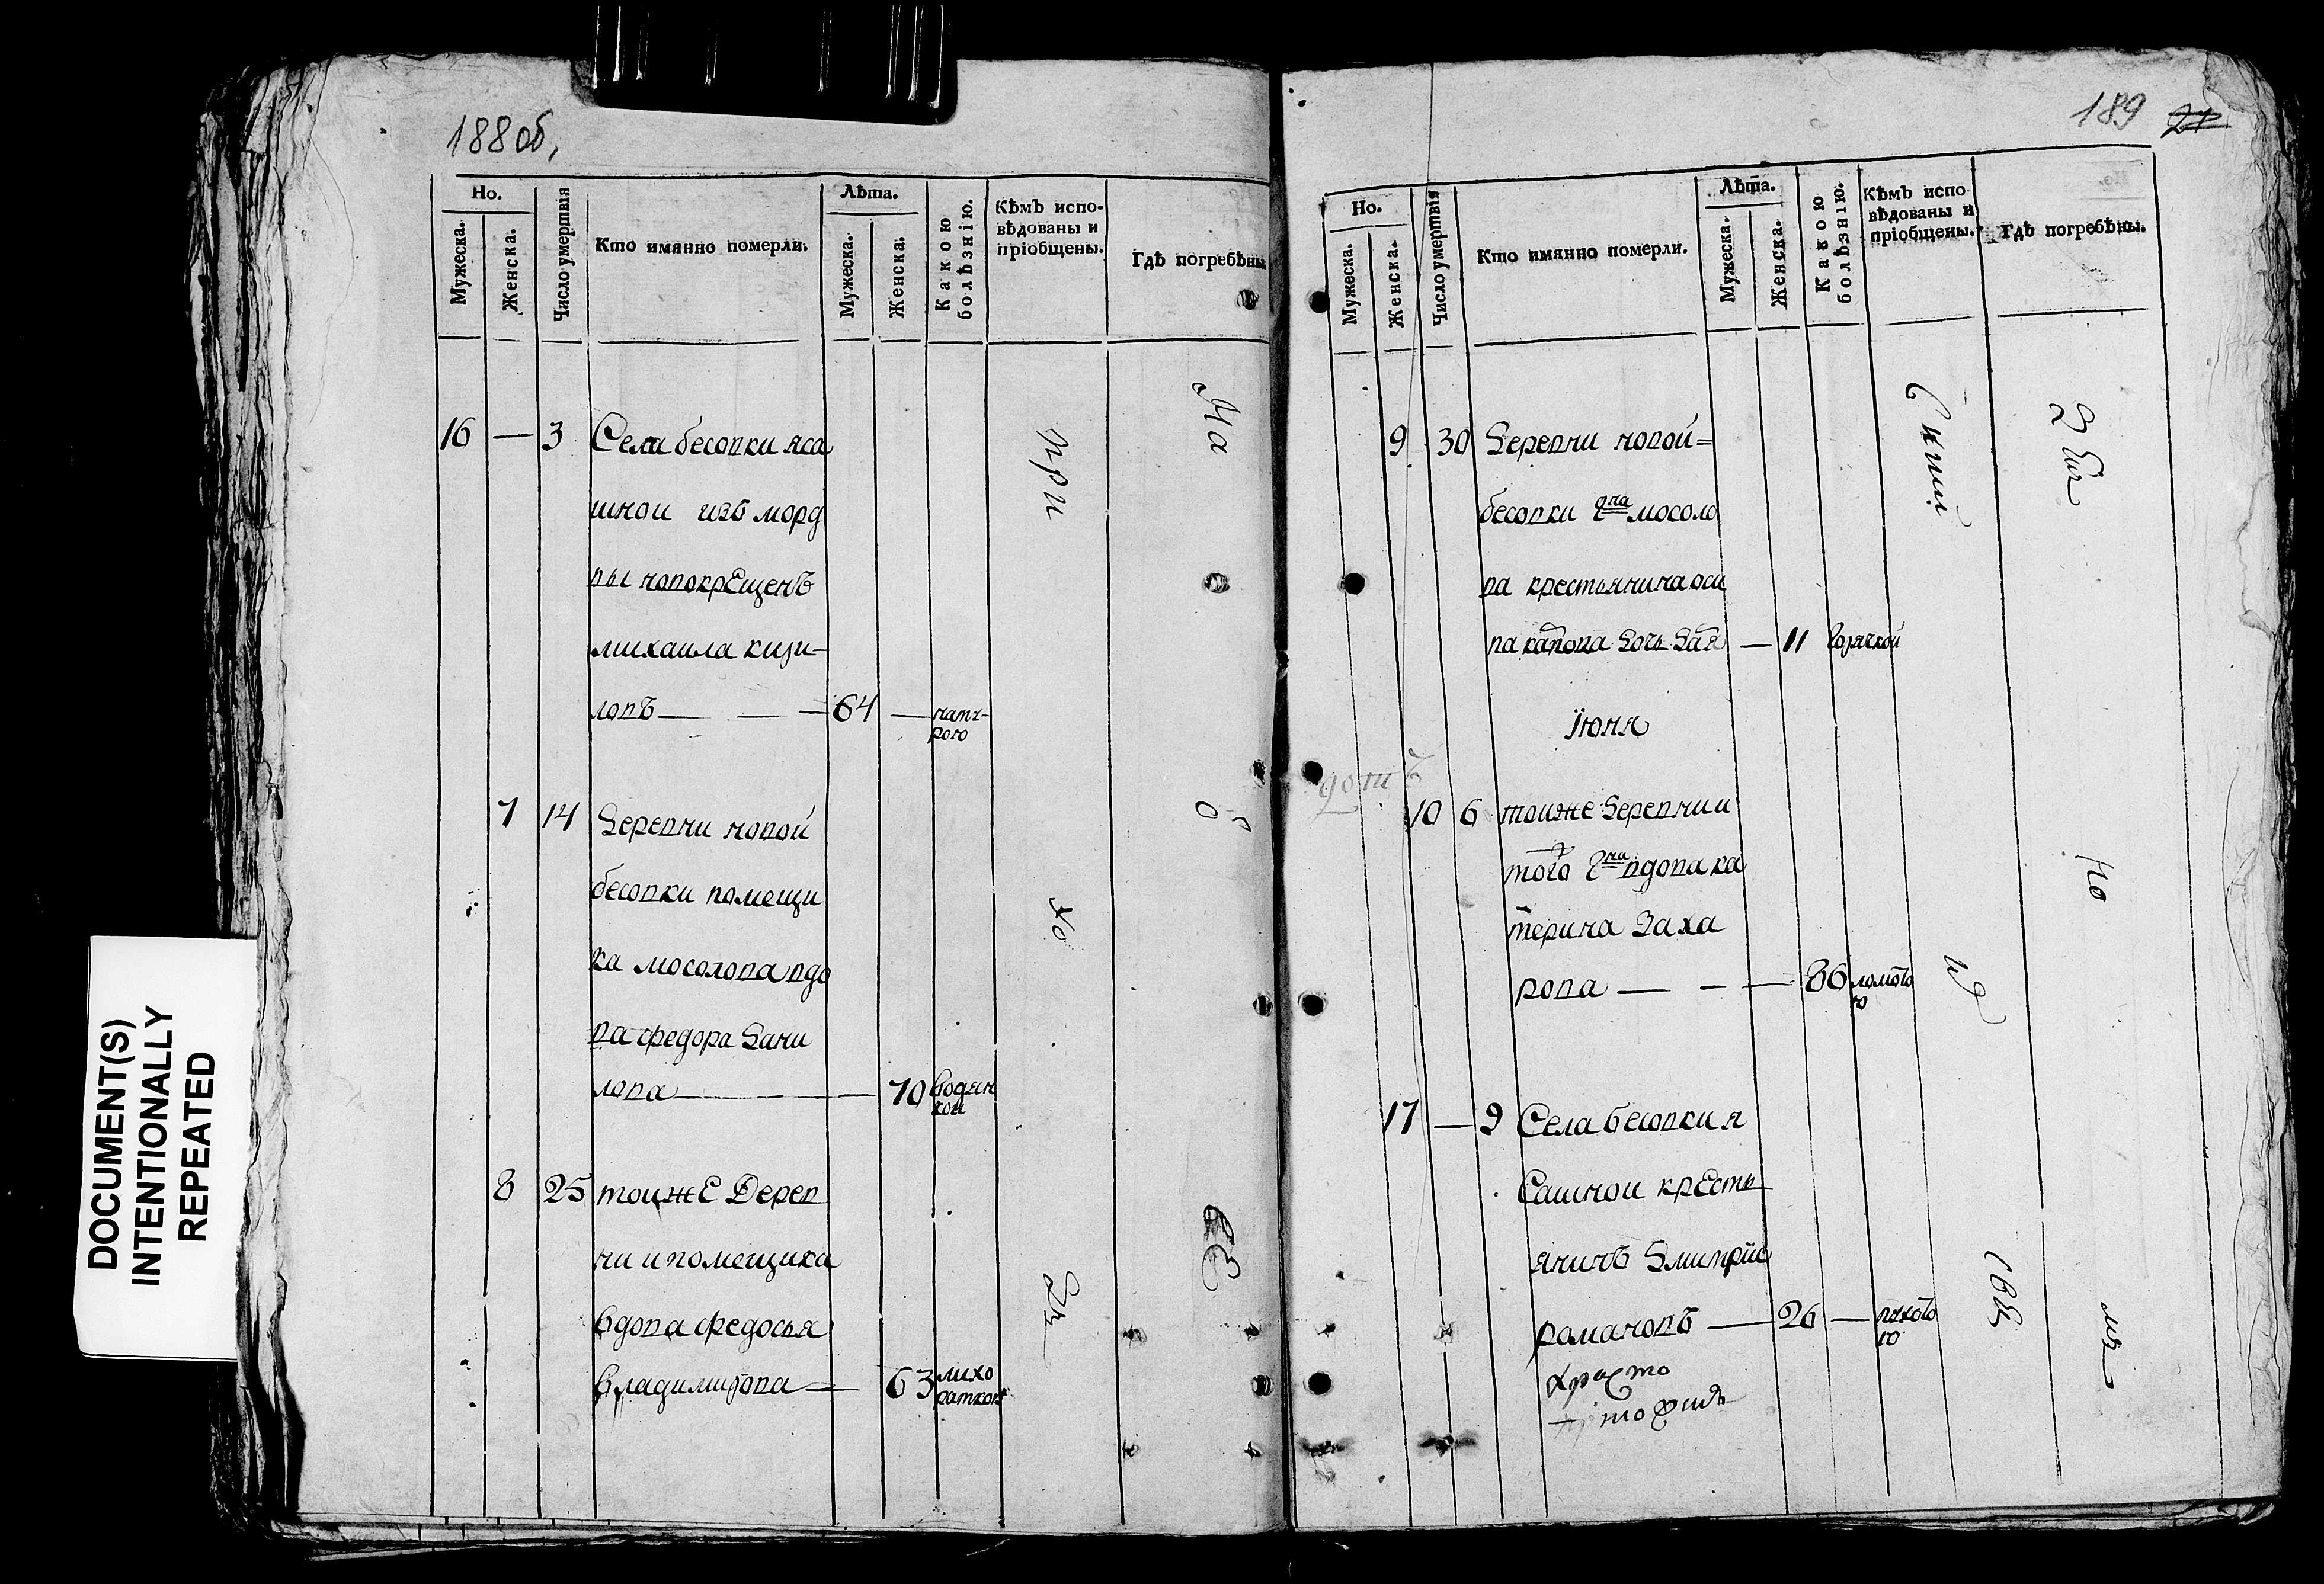 188 об,
Но.
Мужеска.
Женска.
Число умертвія
Кто имянно померли.
Лѣта.
Мужеска.
Женска.
Какою болѣзнію.
Кѣмъ испо-
вѣдованы и
пріобщены.
Гдѣ погребены
16 — 3 Села бесовки яса
шнои изъ морд
вы новокрещенъ
михаила кири-
ловъ — — — 64 —
7 14 Деревни новой
бесовки помещи
ка мосолова вдо
ва федора Дани
лова — 70 водян
кои
8 25 тоиже Дерев
ни и помещика
вдова федосья
владимирова — 63 лихо
раткои
DOCUMENT(S)
INTENTIONALLY
REPEATED
189 21
Но.
Мужеска.
Женска.
Число умертвія
Кто имянно померли.
Лѣта.
Мужеска.
Женска.
Какою болѣзнію.
Кѣмъ испо-
вѣдованы и
пріобщены.
Гдѣ погребены.
9 30 Деревни новой=
бесовки гна мосоло
ва крестьянина оси
па Дочь — 11 горячкой
їюня
10 6 тоиже Деревни и
того гна вдова ка
терина Заха
рова — — — 86 ломото
ю
17 — 9 Села бесовки я
сашнои кресть
янинъ Дмитрiи
романовъ — 26 —